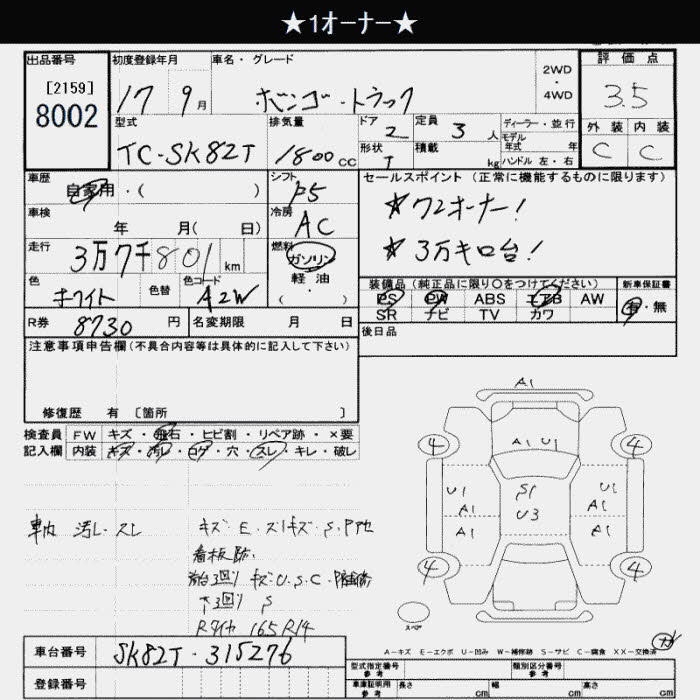 ★1オーナー★
出品番号
[2159]
8002
初度登録年月
17 9月
車名・グレード
ボンゴ・トラック
2WD
・
4WD
評価点
3.5
外装 内装
C C
型式
TC-SK82T
排気量
1800cc
ドア
2
形状
T
定員
3人
積載
kg
ディーラー・並行
モデル
年式 年
ハンドル 左・右
車歴
自家用・( )
シフト
F5
セールスポイント (正常に機能するものに限ります)
★ワンオーナー!
★3万キロ台!
車検
年 月( 日)
冷房
AC
走行
3万7千801km
燃料
ガソリン
軽油
( )
色
ホワイト
色替
色コード
A2W
装備品 (純正品に限り○をつけてください)
新車保証書
PS PW ABS エアB AW
SR ナビ TV カワ
有・無
R券
8730円
名変期限 月 日
後日品
注意事項申告欄(不具合内容等は具体的に記入して下さい)
修復歴 有 〔箇所 〕
検査員
記入欄
FW キズ・飛石・ヒビ割・リペア跡・×要
内装 キズ・汚レ・コゲ・穴・スレ・キレ・破レ
A1
4 4
A1 U1
U1 S1 U1
U3 A1
A1 A1
4 4
スペア
車内 汚レ・スレ
キズ・E・スリキズ・S・Pタセ
看板跡.
荷台3回り キズ・U.S.C.
下3回り S
Rタイヤ 165R14
A−キズ E−エクボ U−凹み W−補修跡 S−サビ C−腐食 XX−交換済
車台番号
SK82T-315276
登録番号
型式指定番号
参考
類別区分番号
参考
車庫証明用
参考
長さ cm
幅 cm
高さ cm